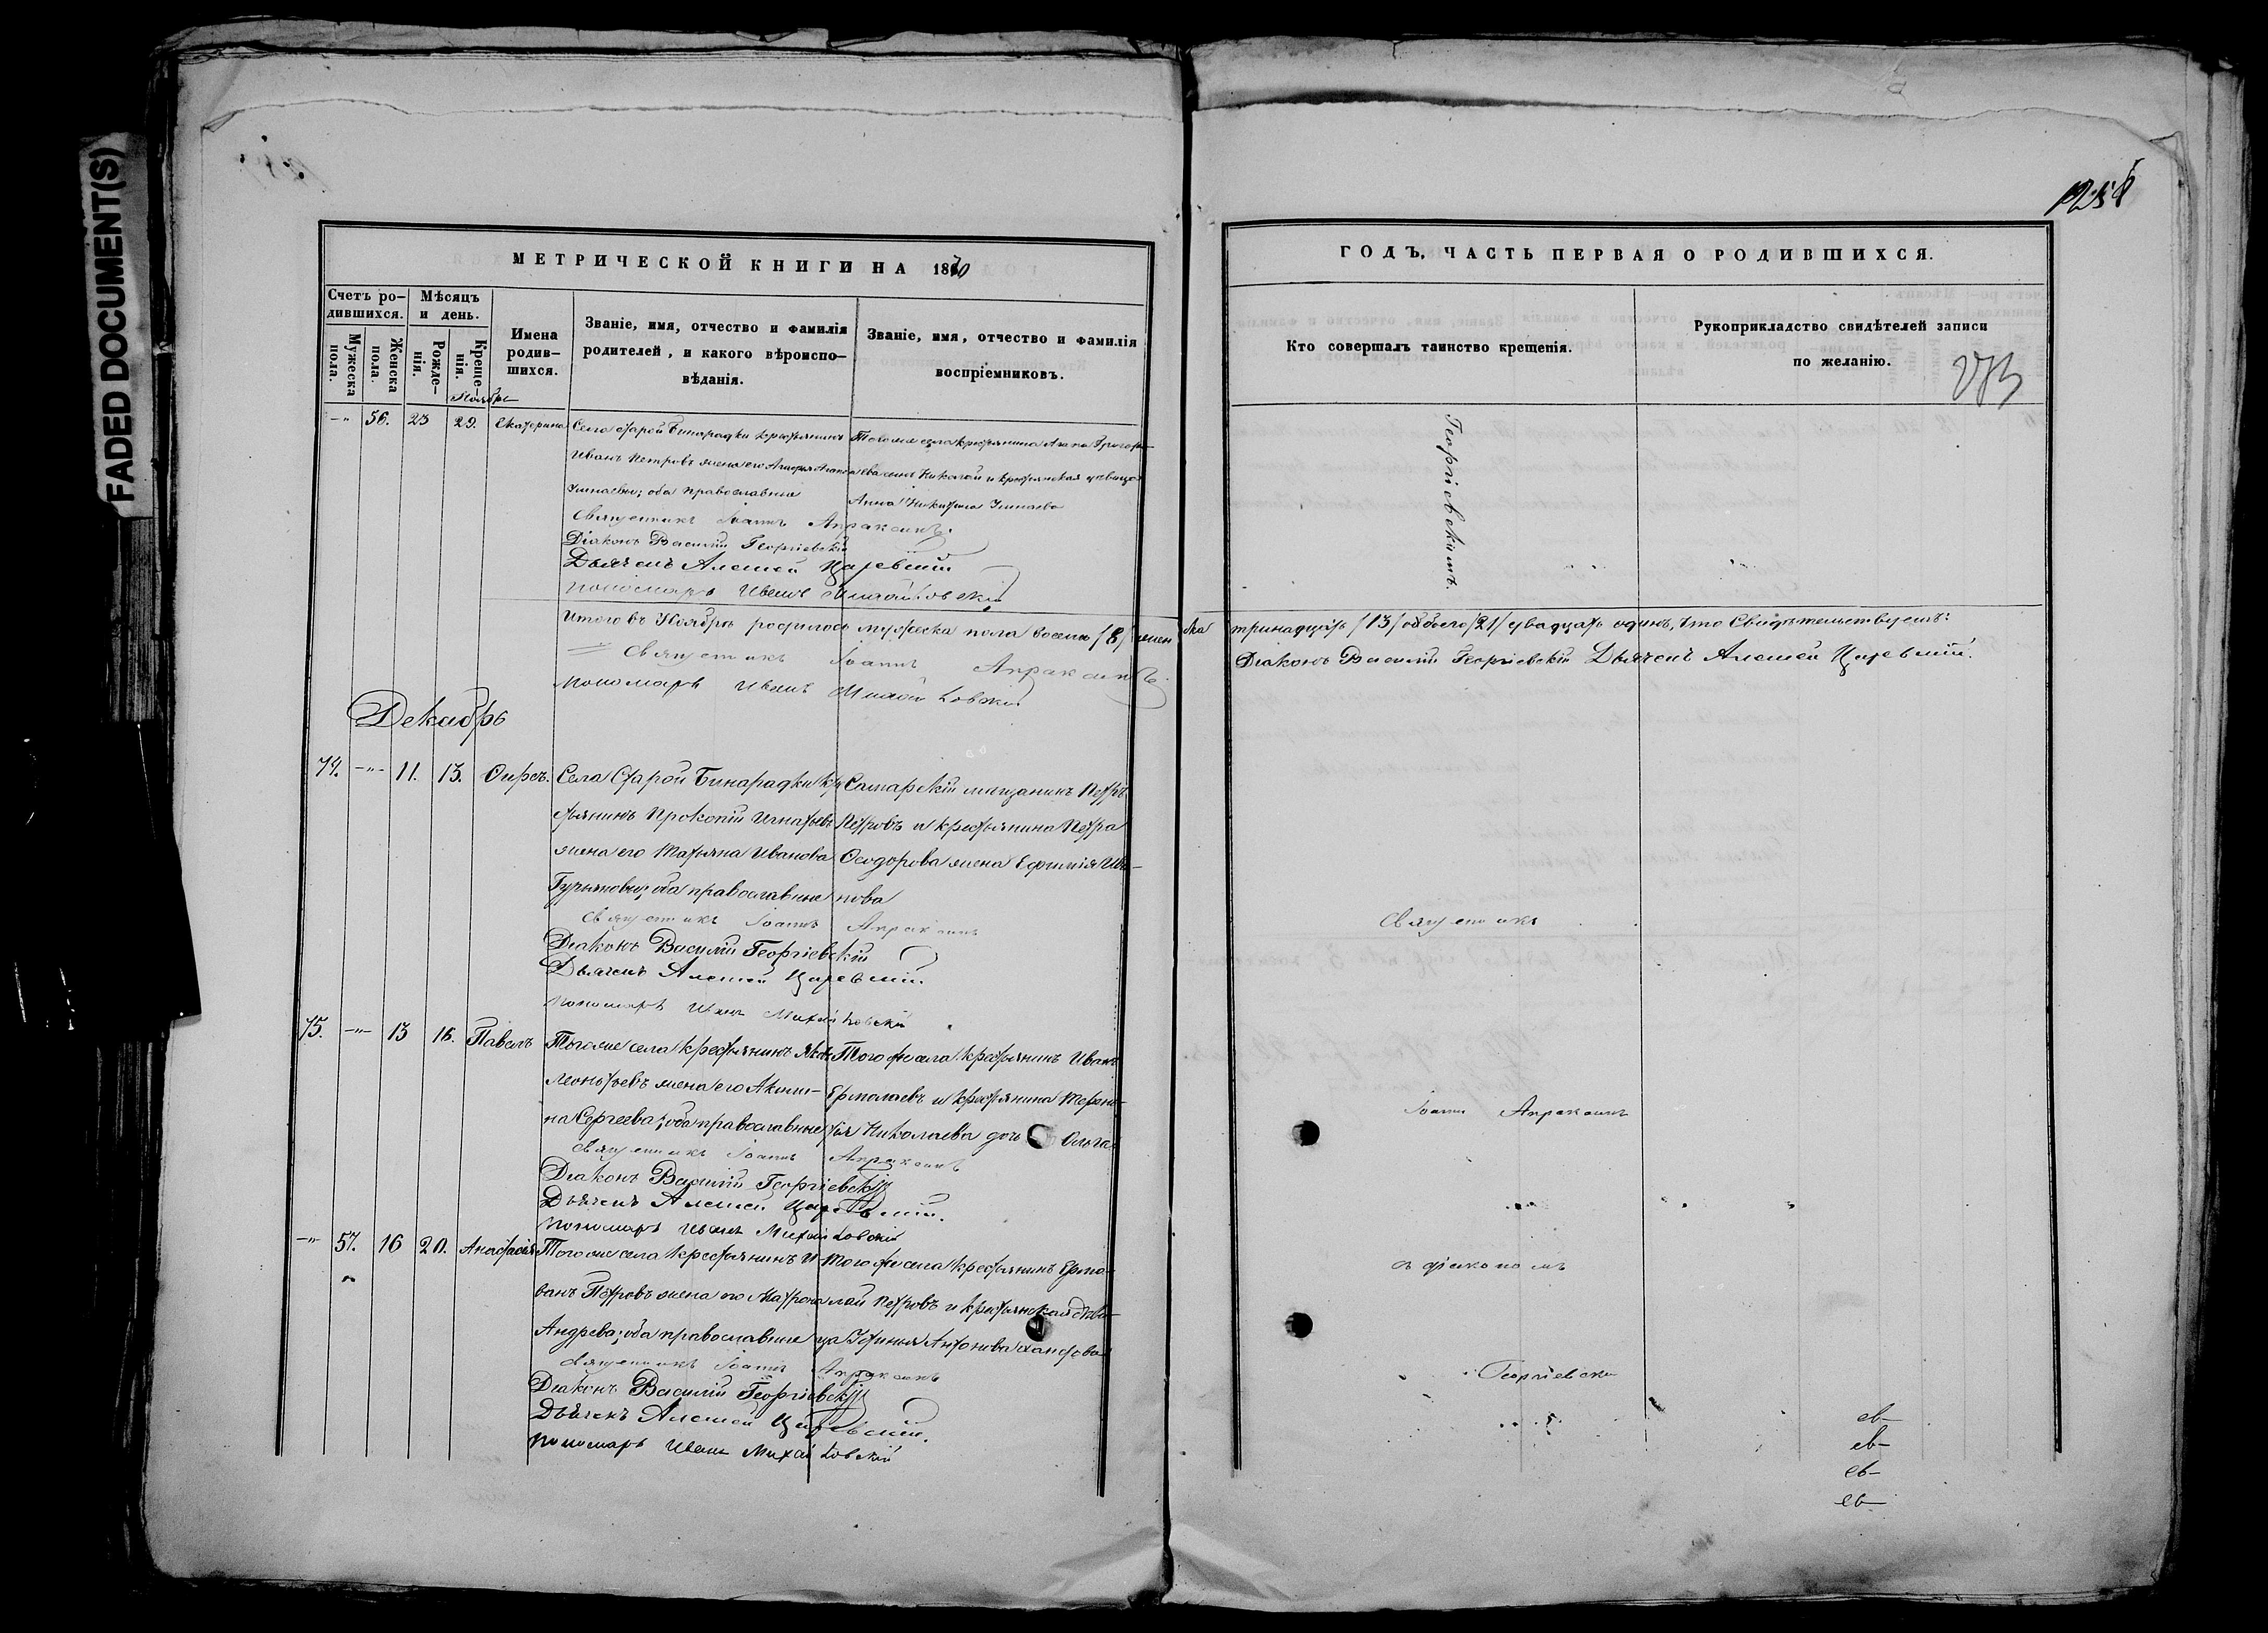 FADED DOCUMENT(S)
МЕТРИЧЕСКОЙ КНИГИ НА 1870
Счетъ ро-
дившихся.
Мѣсяцъ
и день.
Мужеска
пола.
Женска
пола.
Рожде-
нія.
Креще-
нія.
Имена
родив-
шихся.
Званіе, имя, отчество и фамилія
родителей, и какого вѣроиспо-
вѣданія.
Званіе, имя, отчество и фамилія
воспріемниковъ.
Ноября
56. 23 29. Екатерина
Села Старой Бинарадки крестьянинъ
Иванъ Петровъ жена его
оба православные
Священникъ Іоаннъ Апраксинъ.
Діаконъ Василій Георгіевскій
Дьячекъ Алексей Царевскій
Пономарь Иванъ Михайловскій
Тогоже села крестьянина
Николай и крестьянская девица
Анна Никитина
Итого въ Ноябрѣ родилось мужеска пола восемь /8/ женска
Священникъ Іоаннъ Апраксинъ.
Пономарь Иванъ Михайловскій
Декабрь
74. -"- 11. 13. Спирѣ.
Села Старой Бинарадки кре
стьянинъ Прокопій Игнатьевъ
жена его Татьяна Иванова
Гурьяновы; оба православные
Священникъ Іоаннъ Апраксинъ
Діаконъ Василій Георгіевскій
Дьячекъ Алексей Царевскій.
Пономарь Иванъ Михайловскій
Самарскій мещанинъ Петръ
Петровъ и крестьянина Петра
Ѳеодорова жена Ефимія Ива-
нова
75. -"- 13 16. Павелъ
Тогоже села крестьянинъ Яковъ
Леонтьевъ жена его Акили-
на Сергеева; оба православные
Священникъ Іоаннъ Апраксинъ
Діаконъ Василій Георгіевскій
Дьячекъ Алексей Царевскій.
Пономарь Иванъ Михайловскій
Того же села крестьянинъ Иванъ
Ермолаевъ и крестьянина Терен-
тья Николаева дочь Ольга
-"- 57. 16 20. Анастасія
Тогоже села крестьянинъ И-
ванъ Петровъ жена его Матрона
Андреева; оба православные
Священникъ Іоаннъ Апраксинъ
Діаконъ Василій Георгіевскій
Дьячекъ Алексей Царевскій.
Пономарь Иванъ Михайловскій
Того же села крестьянинъ Ермо-
лай Петровъ и крестьянская деви-
ца Устинья Антонова
ГОДЪ, ЧАСТЬ ПЕРВАЯ О РОДИВШИХСЯ.
Кто совершалъ таинство крещенія.
Рукоприкладство свидѣтелей записи
по желанію.
Георгіевскимъ.
тринадцать /13/ обоего /21/ двадцать одинъ, что Свидѣтельствуемъ:
Діаконъ Василій Георгіевскій Дьячекъ Алексей Царевскій.
Священникъ
Іоаннъ Апраксинъ
съ діакономъ
Георгіевски